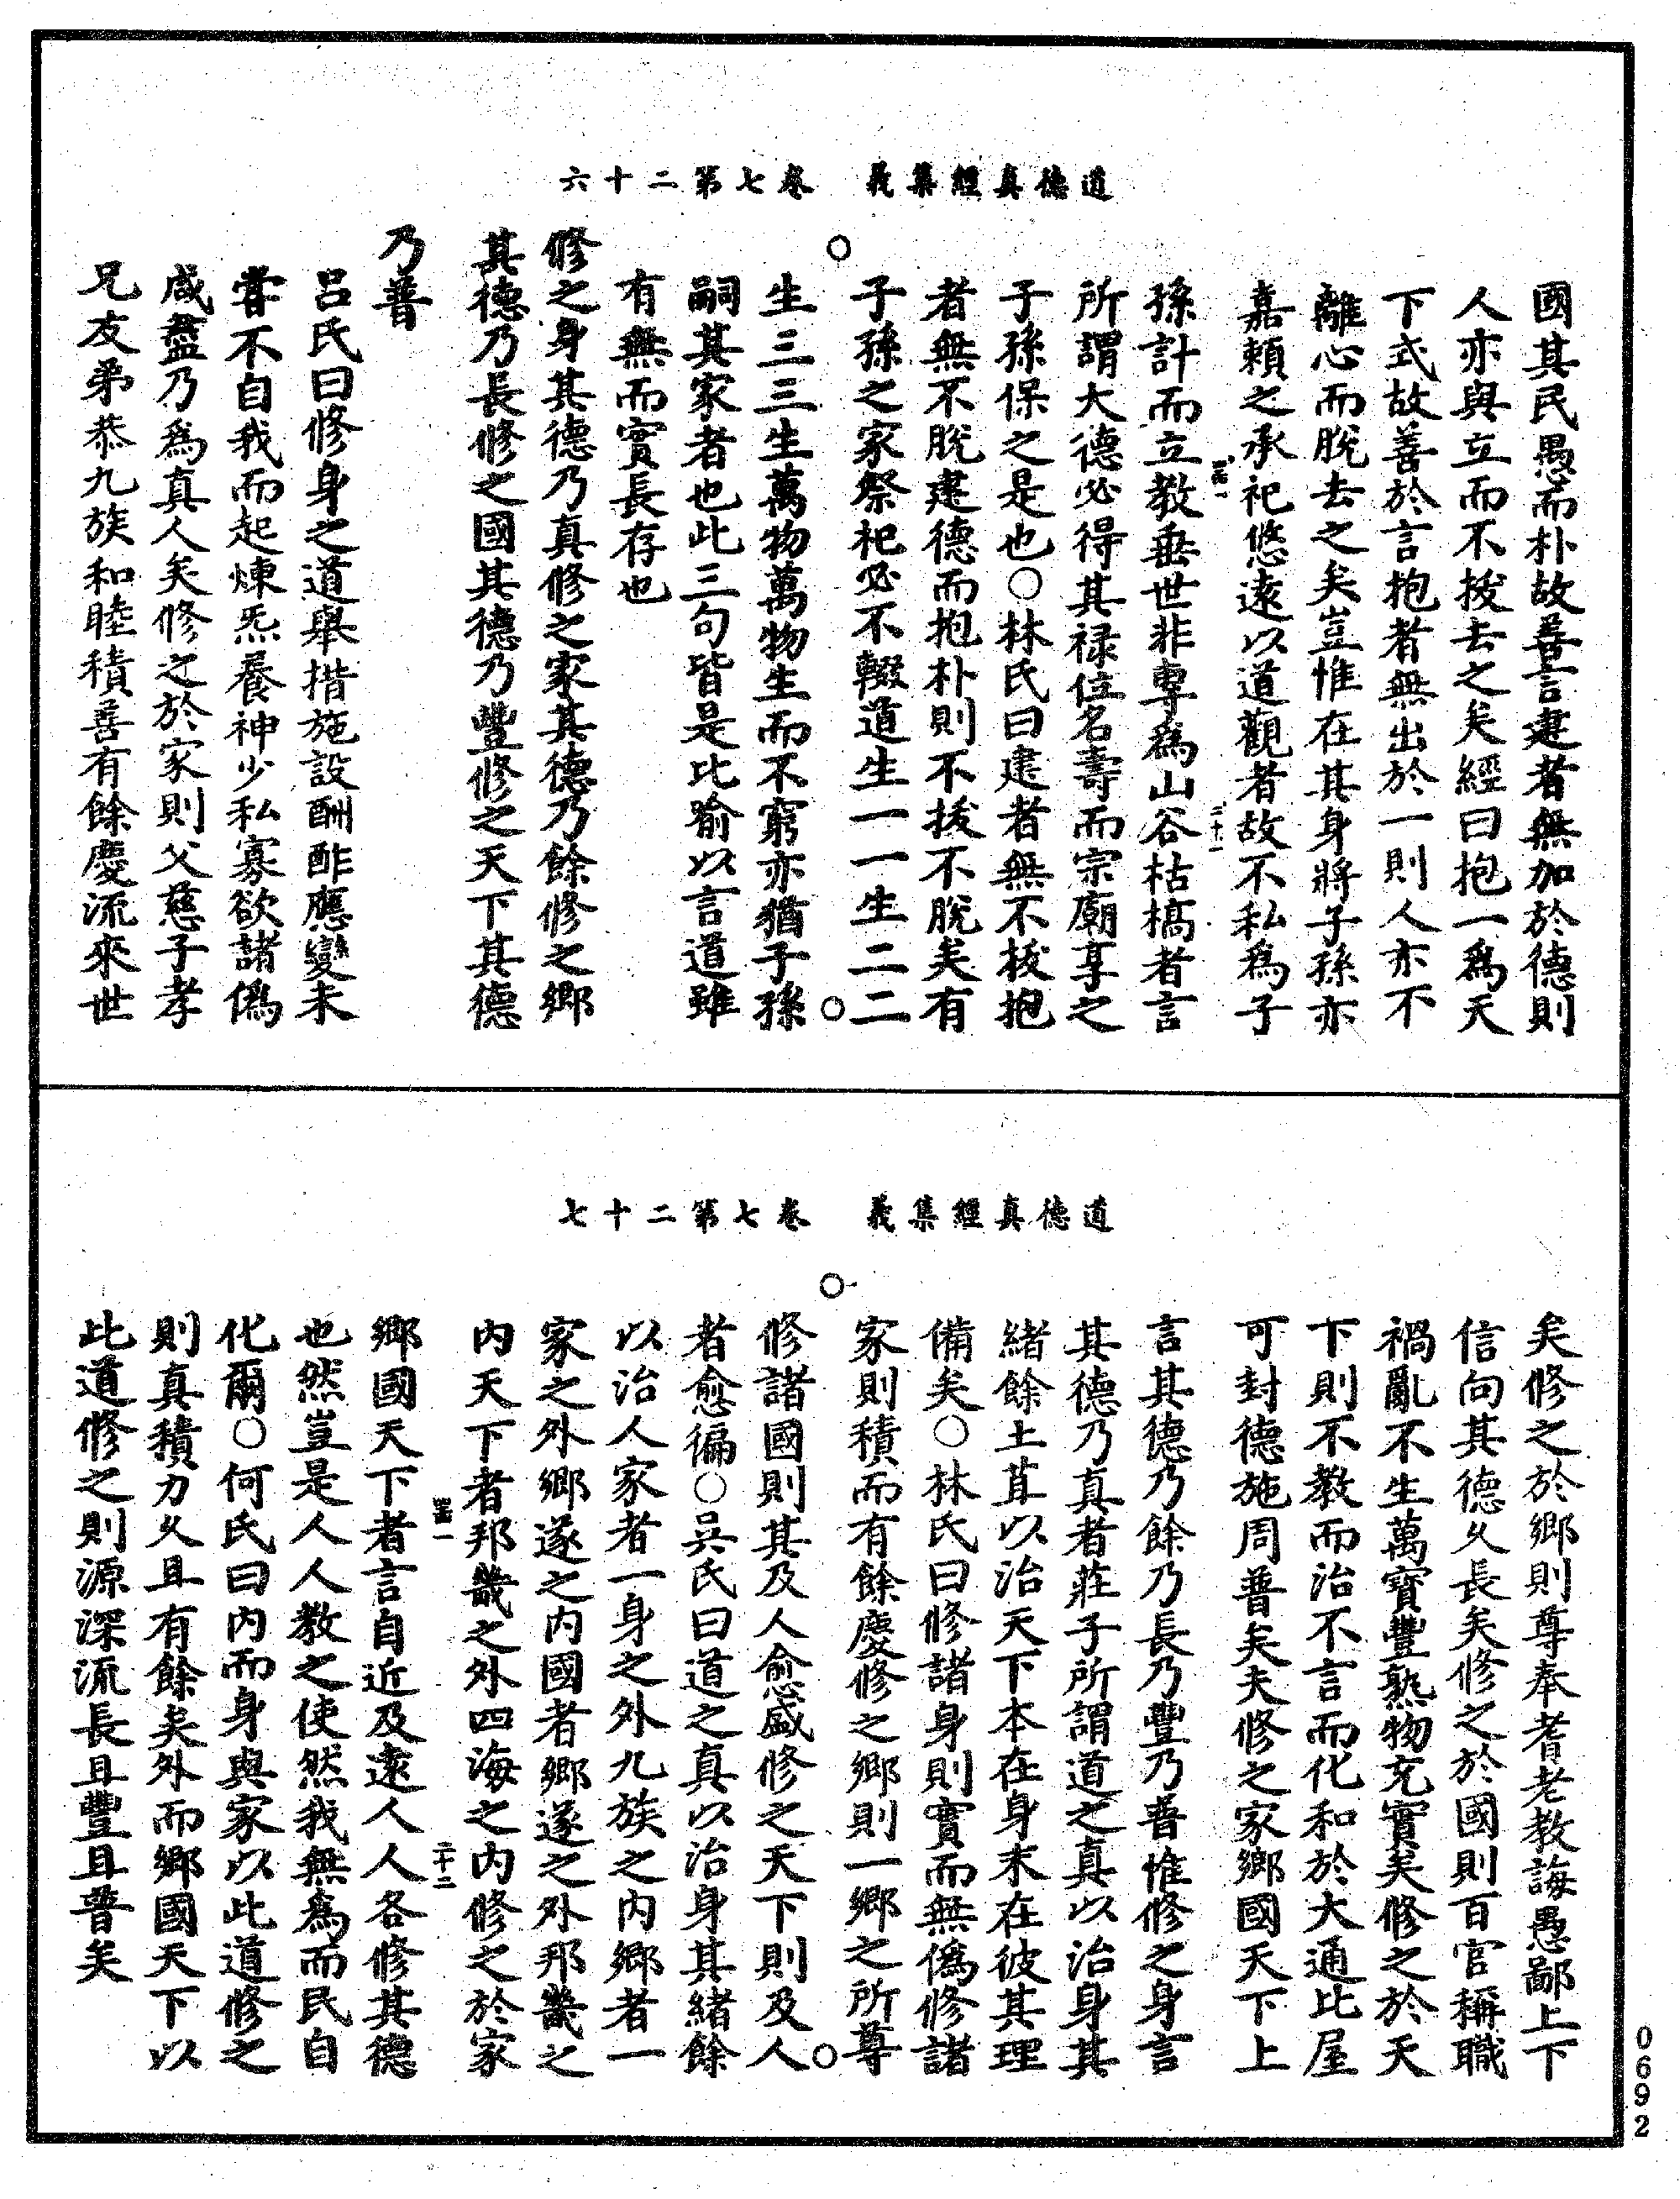 道德真經集義　卷七第二十六
國其民愚而朴故善言建者無加於德則
人亦與立而不拔去之矣經曰抱一爲天
下式故善於言抱者無出於一則人亦不
離心而脫去之矣豈惟在其身將子孫亦
嘉賴之承祀悠遠以道觀者故不私爲子
孫計而立教垂世非專爲山谷枯槁者言
所謂大德必得其祿位名壽而宗廟享之
子孫保之是也○林氏曰建者無不拔抱
者無不脫建德而抱朴則不拔不脫矣有
子孫之家祭祀必不輟道生一一生二二
生三三生萬物萬物生而不窮亦猶子孫
嗣其家者也此三句皆是比喻以言道雖
有無而實長存也
修之身其德乃真修之家其德乃餘修之鄉
其德乃長修之國其德乃豐修之天下其德
乃普
呂氏曰修身之道舉措施設酬酢應變未
嘗不自我而起煉炁養神少私寡欲諸僞
咸盡乃爲真人矣修之於家則父慈子孝
兄友弟恭九族和睦積善有餘慶流來世
道德真經集義　卷七第二十七
矣修之於鄉則尊奉耆老教誨愚鄙上下
信向其德乆長矣修之於國則百官稱職
禍亂不生萬寶豐熟物充實矣修之於天
下則不教而治不言而化和於大通比屋
可封德施周普矣夫修之家鄉國天下上
言其德乃餘乃長乃豐乃普惟修之身言
其德乃真者莊子所謂道之真以治身其
緒餘土苴以治天下本在身末在彼其理
備矣○林氏曰修諸身則實而無僞修諸
家則積而有餘慶修之鄉則一鄉之所尊
修諸國則其及人愈盛修之天下則及人
者愈徧○吳氏曰道之真以治身其緒餘
以治人家者一身之外九族之內鄉者一
家之外鄉遂之內國者鄉遂之外邦畿之
內天下者邦畿之外四海之內修之於家
鄉國天下者言自近及遠人人各修其德
也然豈是人人教之使然我無爲而民自
化爾○何氏曰內而身與家以此道修之
則真積力乆且有餘矣外而鄉國天下以
此道修之則源深流長且豐且普矣
0692